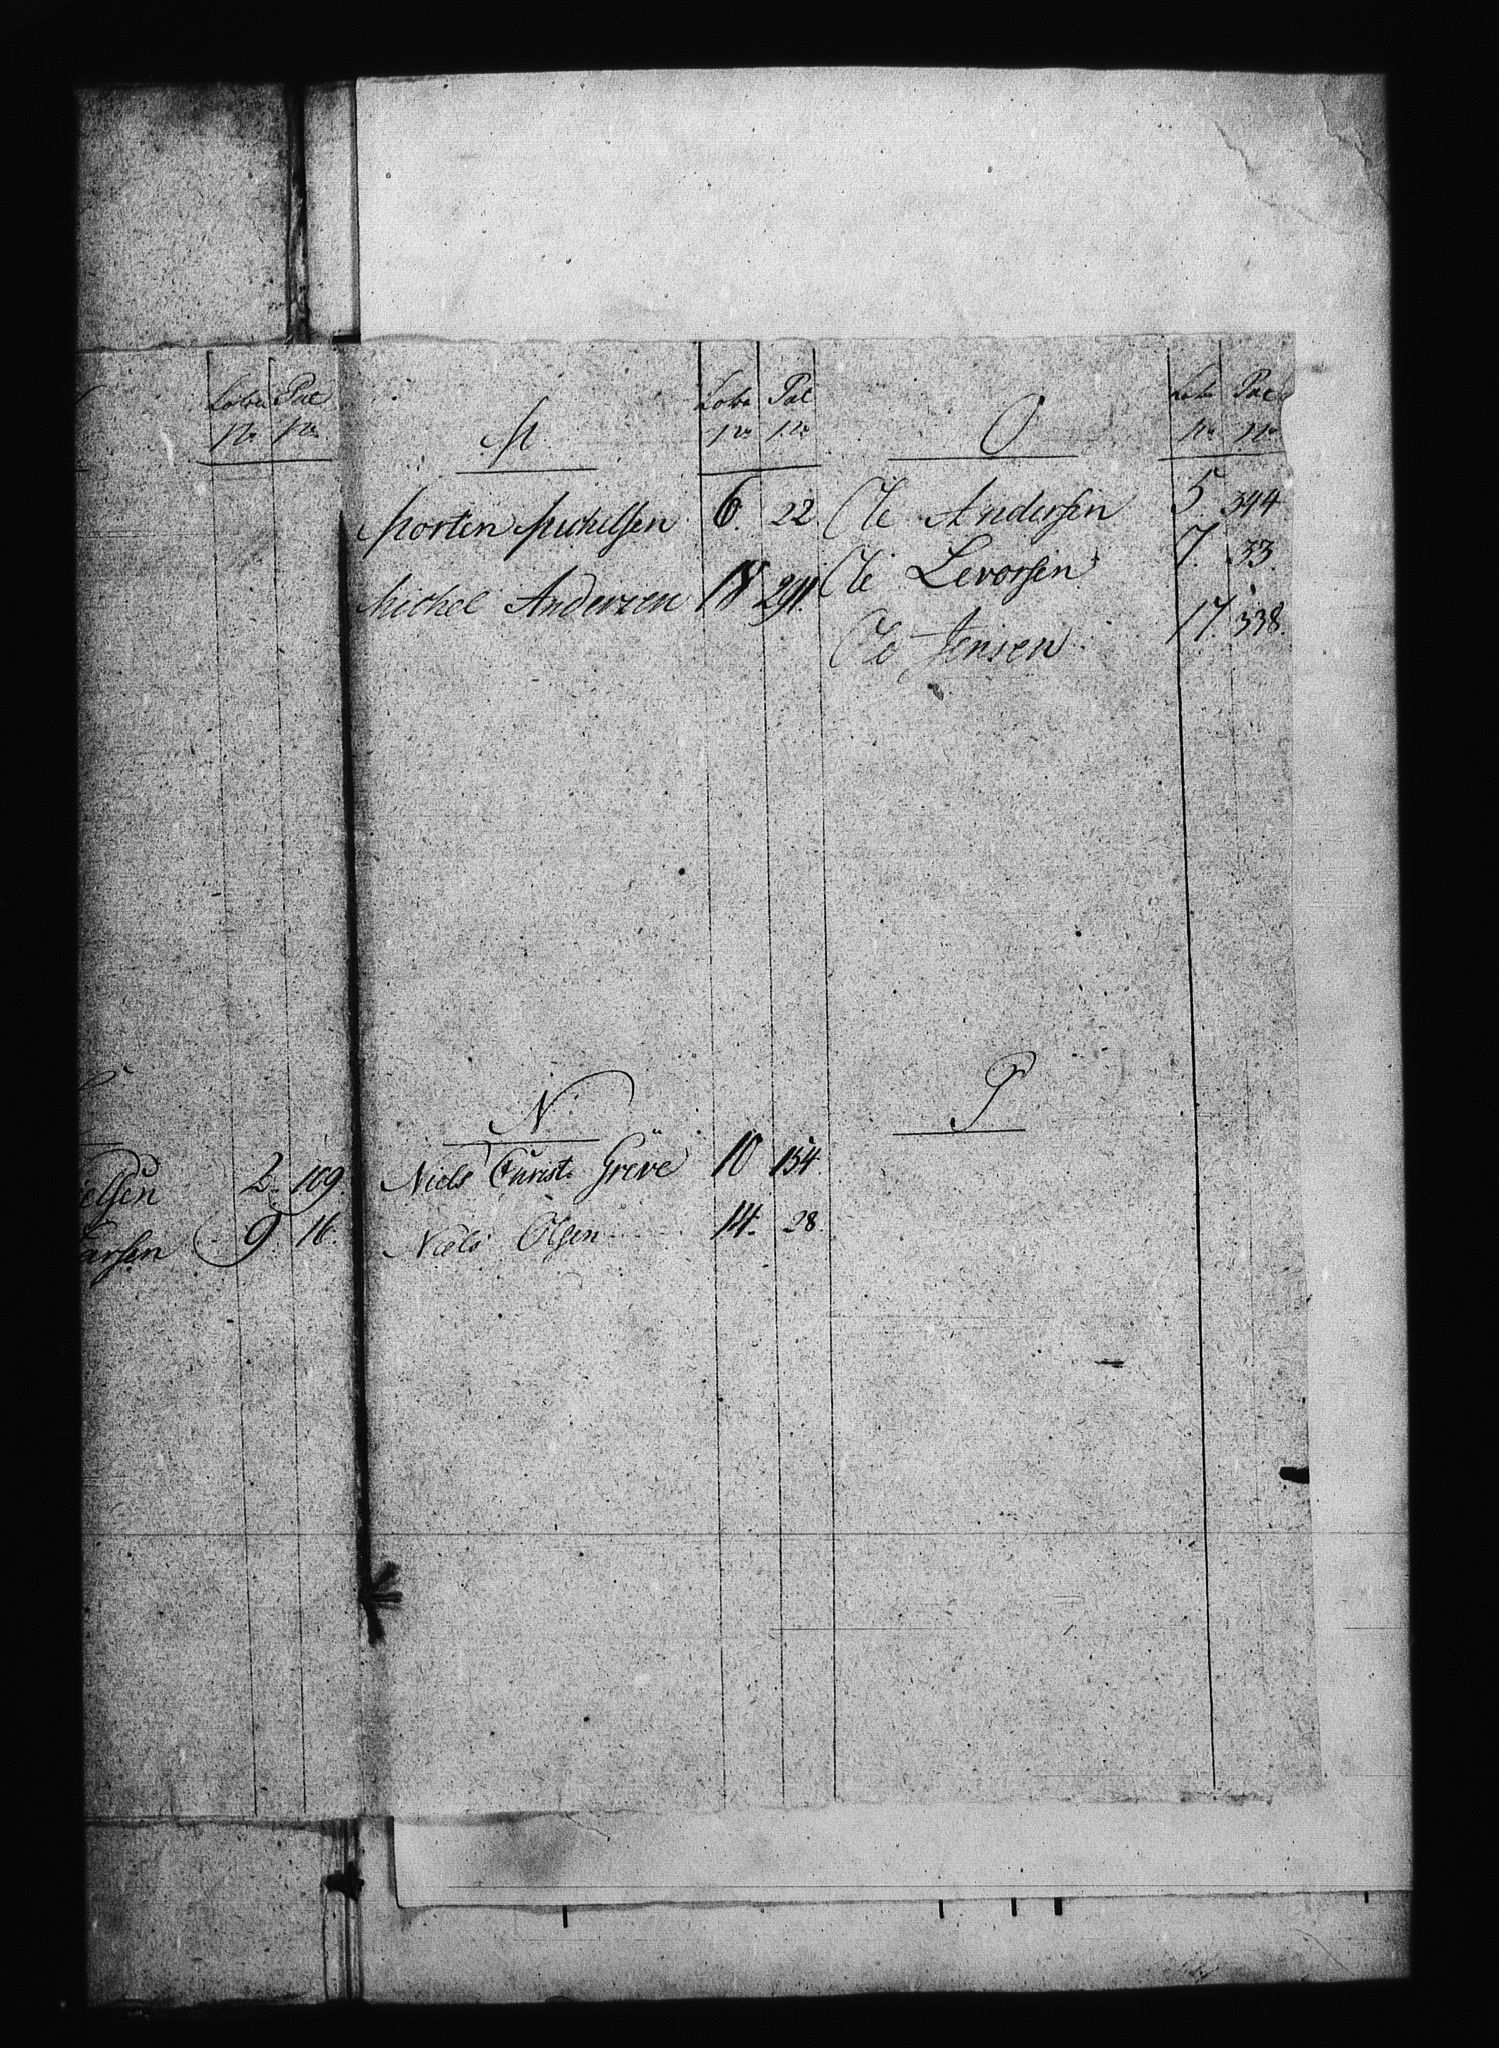 Lobe Pat
No No
elsen 2. 109.
arsen 9. 16.
M Lobe Pat
No No
Morten Michelsen 6. 22.
Michel Anderzen 18 291.
N
Niels Christ. Greve 10 154
Niels Olsen 14. 28.
O Lobe Pat
No No
Ole Andersen 5. 344
Ole Levorsen 7. 33.
Ole Jensen 17. 338.
P